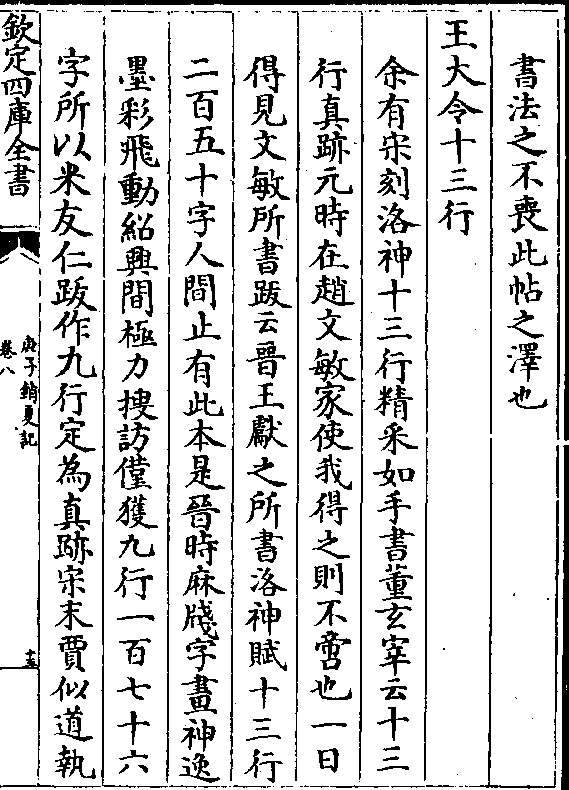 書法之不喪此帖之澤也
王大令十三行
余有宋刻洛神十三行精采如手書董玄宰云十三
行真跡元時在趙文敏家使我得之則不啻也一日
得見文敏所書跋云晉王獻之所書洛神賦十三行
二百五十字人間止有此本是晉時麻牋字畫神逸
墨彩飛動紹興間極力搜訪僅獲九行一百七十六
字所以米友仁跋作九行定為真跡宋末賈似道執
欽定四庫全書
庚子銷夏記
卷八
十五